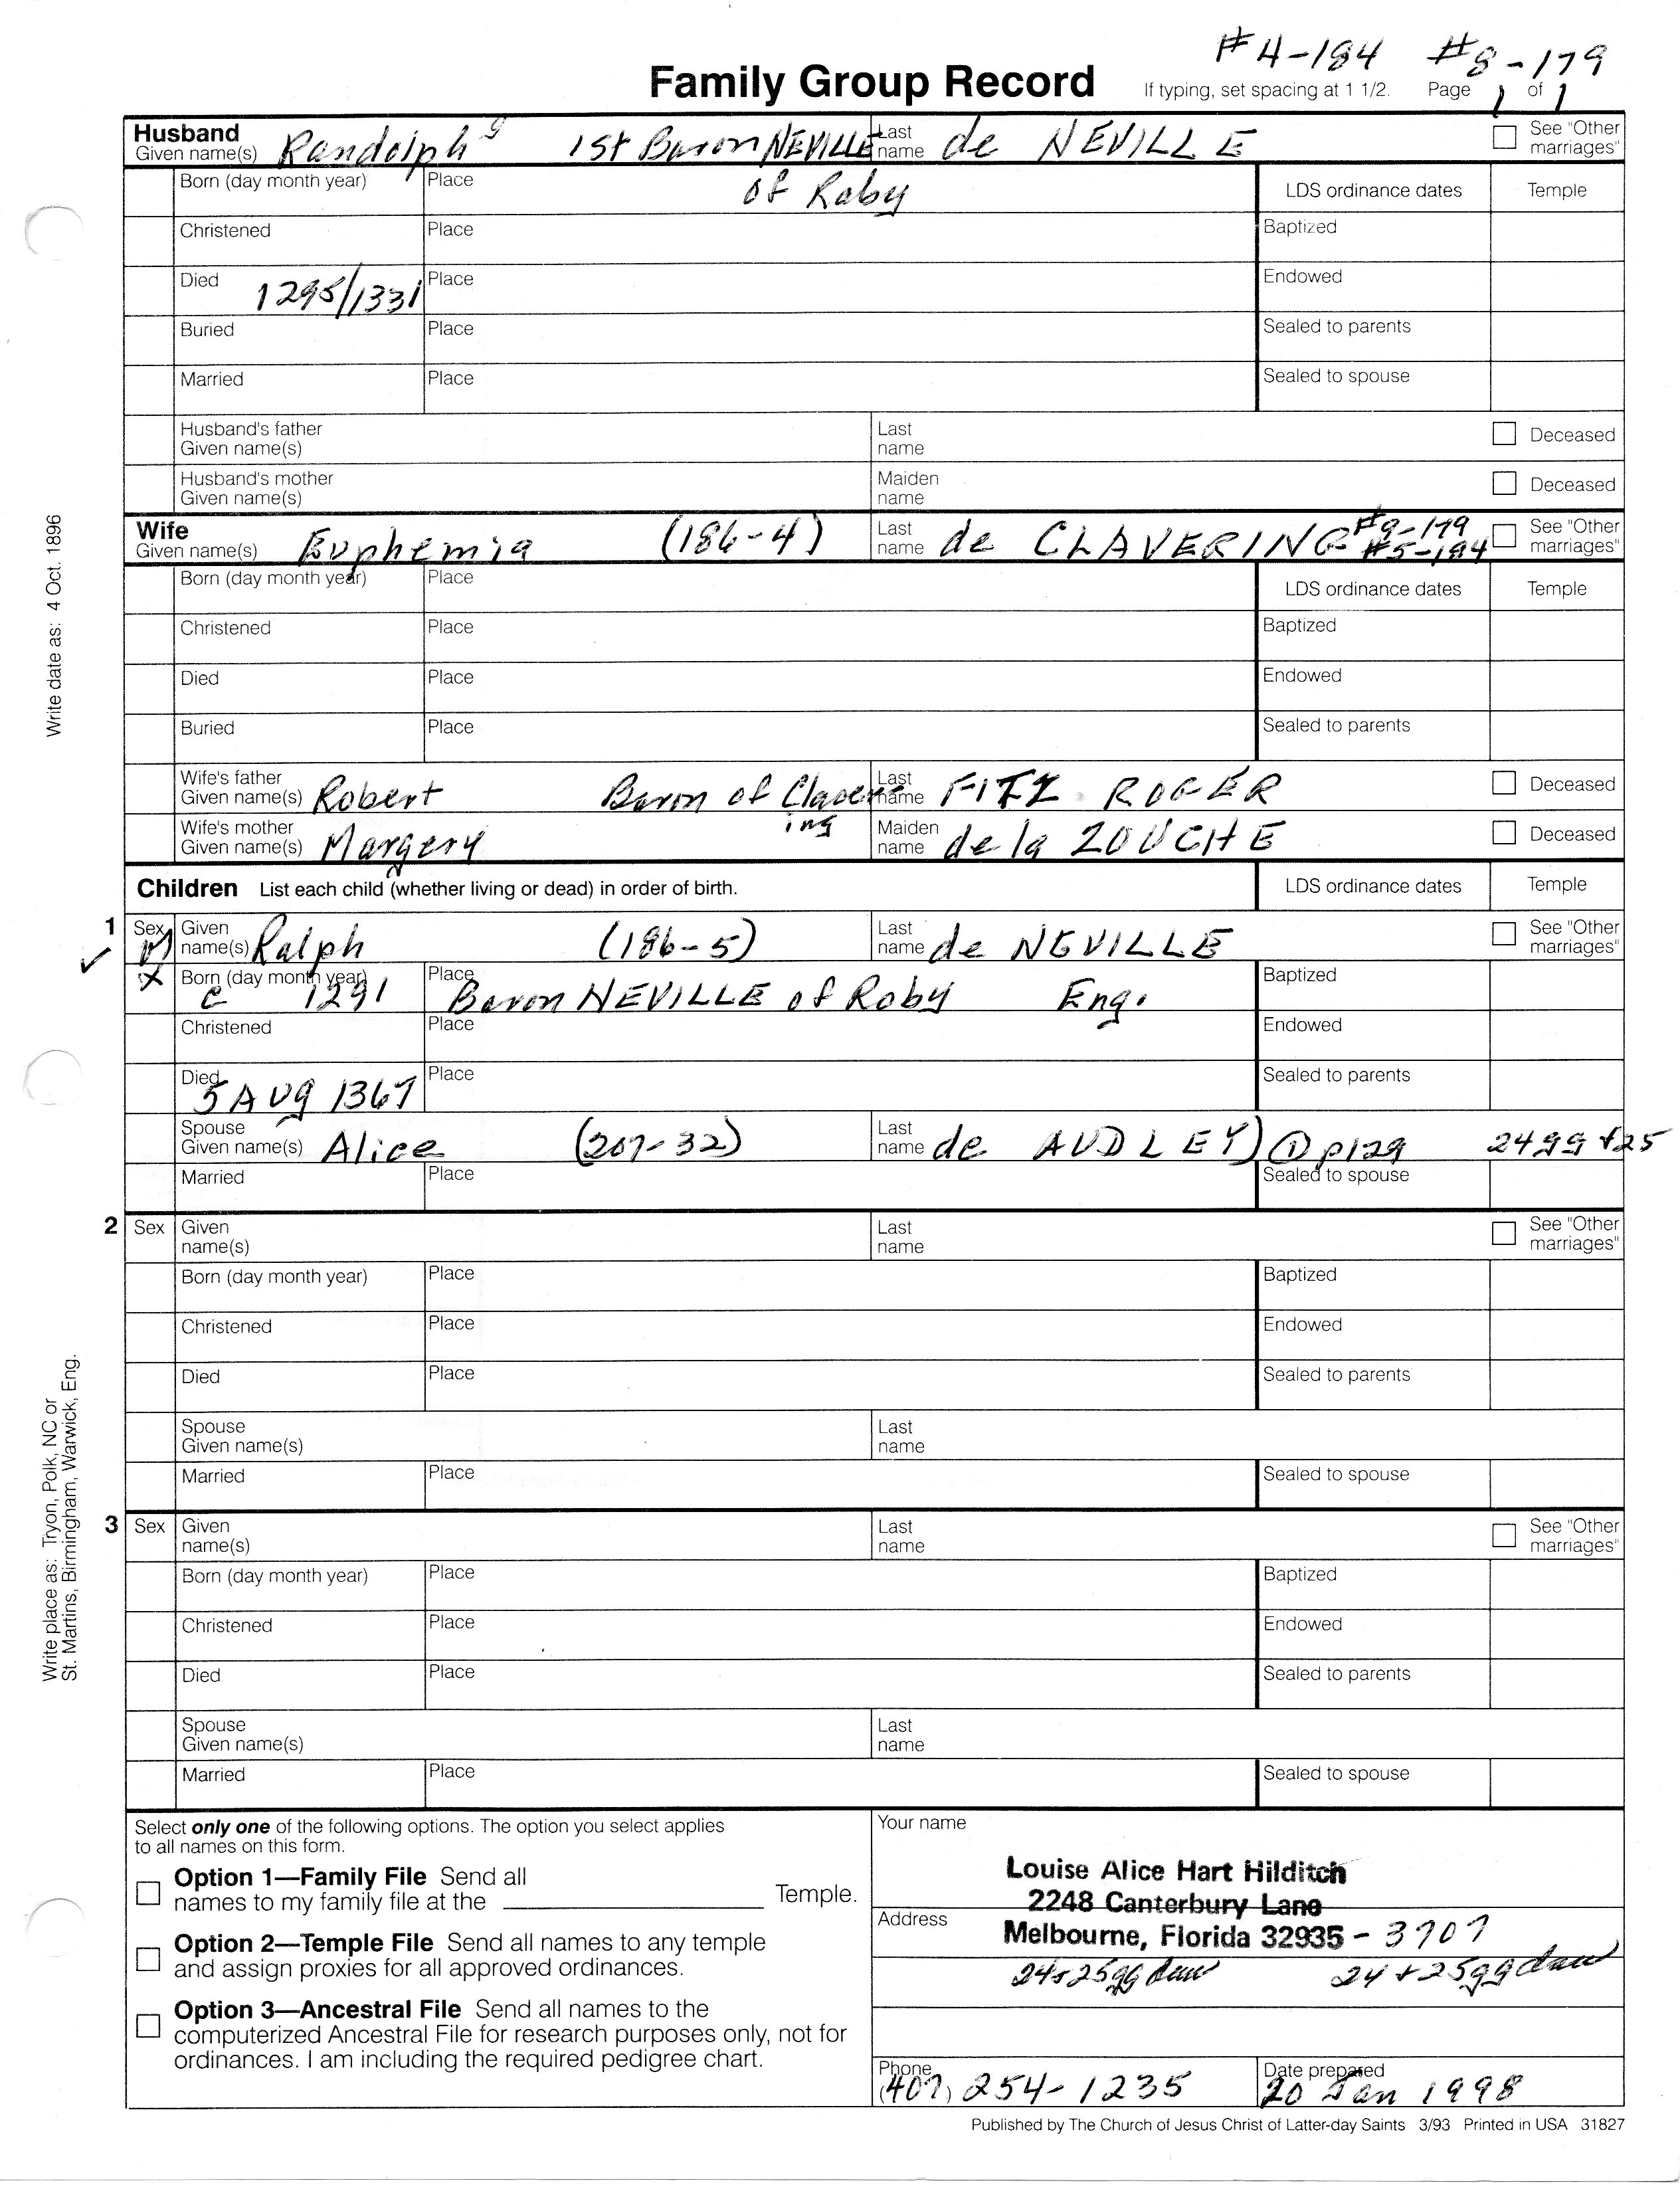 #4-184 #8-179
Family Group Record If typing, set spacing at 1 1/2. Page 1 of 1
Husband
Given name(s) Randolph 1st Baron NEVILLE Last name de NEVILLE See "Other marriages"
of Raby
Born (day month year) Place LDS ordinance dates Temple
Christened Place Baptized
Died 1295/1331 Place Endowed
Buried Place Sealed to parents
Married Place Sealed to spouse
Husband's father
Given name(s) Last name Deceased
Husband's mother
Given name(s) Maiden name Deceased
Wife
Given name(s) Euphemia (186-4) Last name de CLAVERING #9-179 #5-184 See "Other marriages"
Born (day month year) Place LDS ordinance dates Temple
Christened Place Baptized
Died Place Endowed
Buried Place Sealed to parents
Wife's father
Given name(s) Robert Baron of Clavering Last name FITZ ROGER Deceased
Wife's mother
Given name(s) Margery Maiden name de la ZOUCHE Deceased
Children List each child (whether living or dead) in order of birth. LDS ordinance dates Temple
1 Sex M Given name(s) Ralph (186-5) Last name de NEVILLE See "Other marriages"
X Born (day month year) c 1291 Place Baron NEVILLE of Raby Eng. Baptized
Christened Place Endowed
Died 5 AUG 1367 Place Sealed to parents
Spouse
Given name(s) Alice (207-32) Last name de AUDLEY) ① p129 24gg+25
Married Place Sealed to spouse
2 Sex Given name(s) Last name See "Other marriages"
Born (day month year) Place Baptized
Christened Place Endowed
Died Place Sealed to parents
Spouse
Given name(s) Last name
Married Place Sealed to spouse
3 Sex Given name(s) Last name See "Other marriages"
Born (day month year) Place Baptized
Christened Place Endowed
Died Place Sealed to parents
Spouse
Given name(s) Last name
Married Place Sealed to spouse
Write date as: 4 Oct. 1896
Write place as: Tryon, Polk, NC or
St. Martins, Birmingham, Warwick, Eng.
Select only one of the following options. The option you select applies
to all names on this form.
Option 1—Family File Send all
names to my family file at the Temple.
Option 2—Temple File Send all names to any temple
and assign proxies for all approved ordinances.
Option 3—Ancestral File Send all names to the
computerized Ancestral File for research purposes only, not for
ordinances. I am including the required pedigree chart.
Your name
Louise Alice Hart Hilditch
2248 Canterbury Lane
Address
Melbourne, Florida 32935-3707
24+25gg dau 24+25gg dau
Phone
(407) 254-1235
Date prepared
20 Jan 1998
Published by The Church of Jesus Christ of Latter-day Saints 3/93 Printed in USA 31827